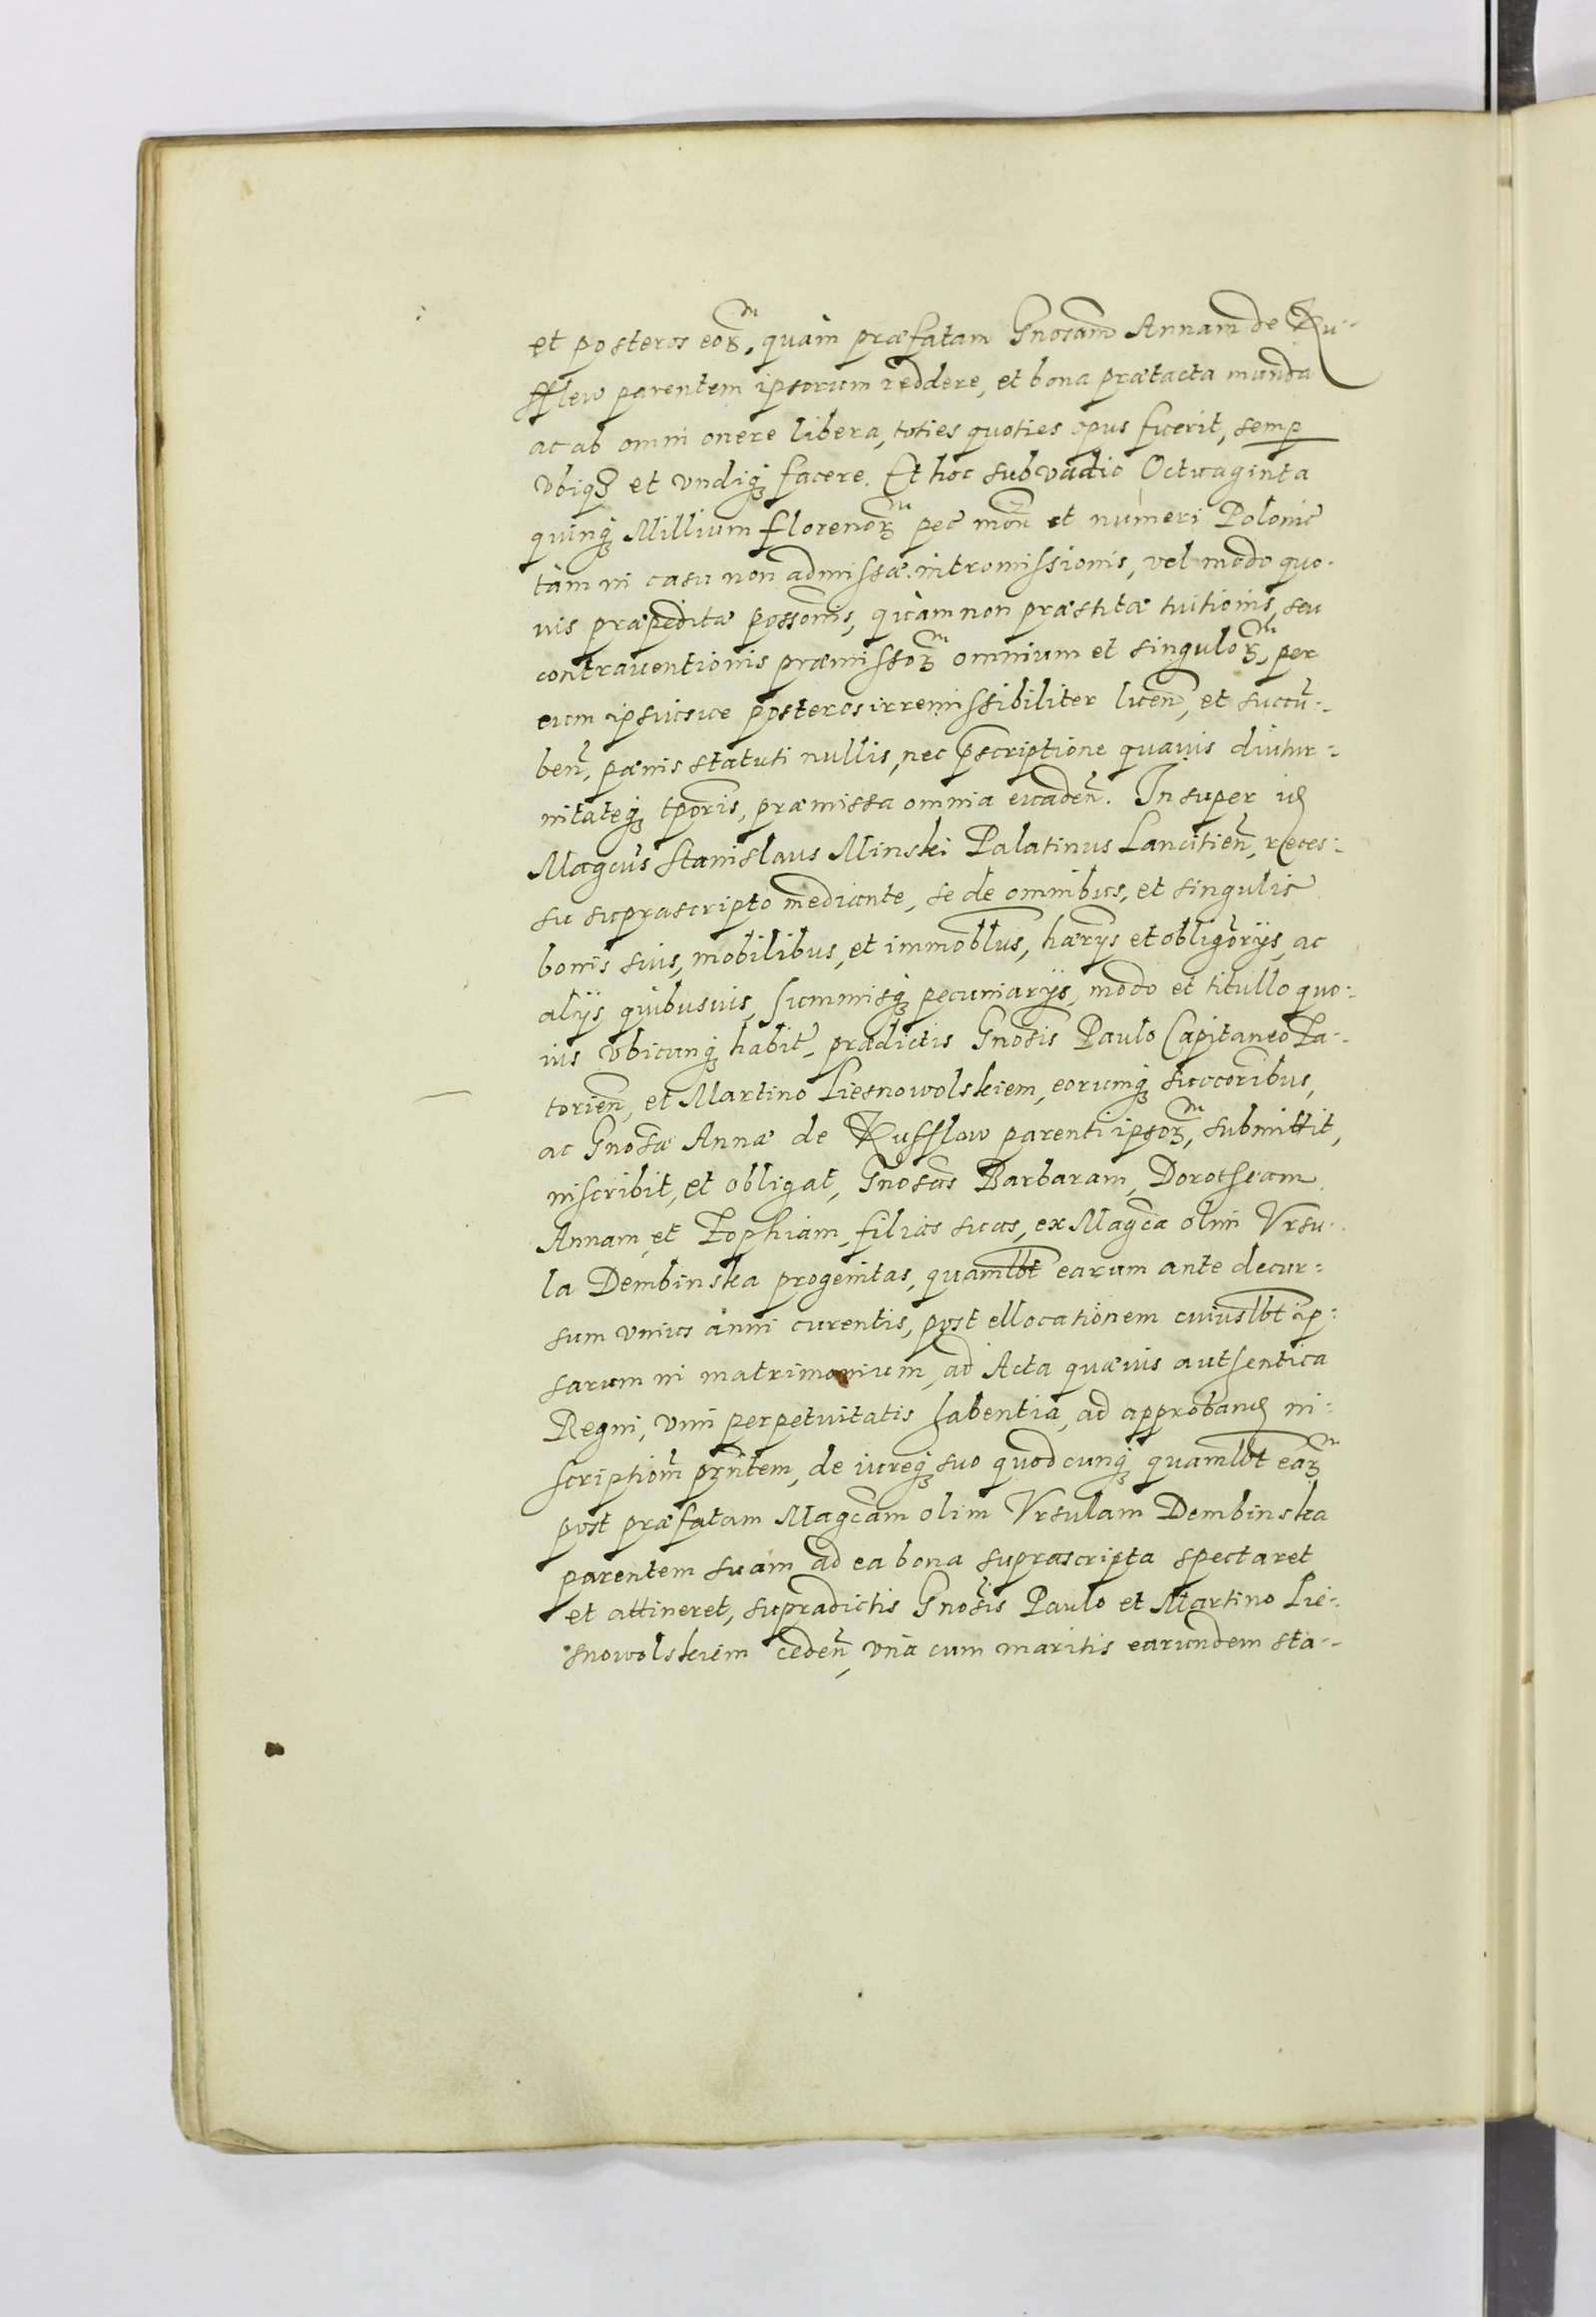 et posteros eoꝝ, quàm præfatam Gnosam̄ Annam de Ru-
sflew parentem ipsorum reddere, et bona prætacta munda
ac ab omni onere libera, toties quoties opus fuerit, semp
vbiqꝫ et vndiqꝫ facere. Et hoc sub vadio Octuaginta
quinqꝫ Millium florenoꝝ pec mon̄ et numeri Polonic̄
tàm in casu non admissæ intromissionis, vel modo quo-
uis præpeditæ possonis̄, quàm non præstitæ tuitionis, seu
contrauentionis præmissoꝝ omnium et singuloꝝ, per
eum ipsiusue posteros irremissibiliter luen̄, et succū-
ben̄, pænis statuti nullis, nec p̄scriptione quauis diutur-
nitateqꝫ tporis̄, præmissa omnia euaden̄. In super id
Magcus̄ Stanislaus Minski Palatinus Lancitien̄, reces-
su suprascripto mediante, se de omnibus, et singulis
bonis suis, mobilibus, et immobl̄us, hærys̄ et obligōrijs, ac
alijs quibusuis, summisqꝫ pecuniarijs, modo et titullo quo-
uis vbicunqꝫ habit̄, prædictis Gnosis̄ Paulo Capitaneo La-
torien̄, et Martino Liesnowolskiem, eorumqꝫ succoribus̄,
ac Gnosǣ Annæ de Rufflow parenti ipsoꝝ, submittit,
inscribit, et obligat, Gnosas̄ Barbaram, Dorotheam
Annam, et Zophiam, filias suas, ex Magca̅ olim Vrsu-
la Dembinska progenitas, quamlbt̄ earum ante decur-
sum vnius anni curentis, post ellocationem cuiuslbt̄ ip-
sarum in matrimonium, ad Acta quæuis authentica
Regni, vim perpetuitatis habentia, ad approband in-
scriptiom̄ prn̄tem, de iureqꝫ suo quodcunqꝫ quamlbt̄ eaꝝ
post præfatam Magcam̄ olim Vrsulam Dembinska
parentem suam ad ea bona suprascripta spectaret
et attineret, supradictis Gnosis̄ Paulo et Martino Lie-
snowolskiem ceden̄, vnà cum maritis earundem sta-